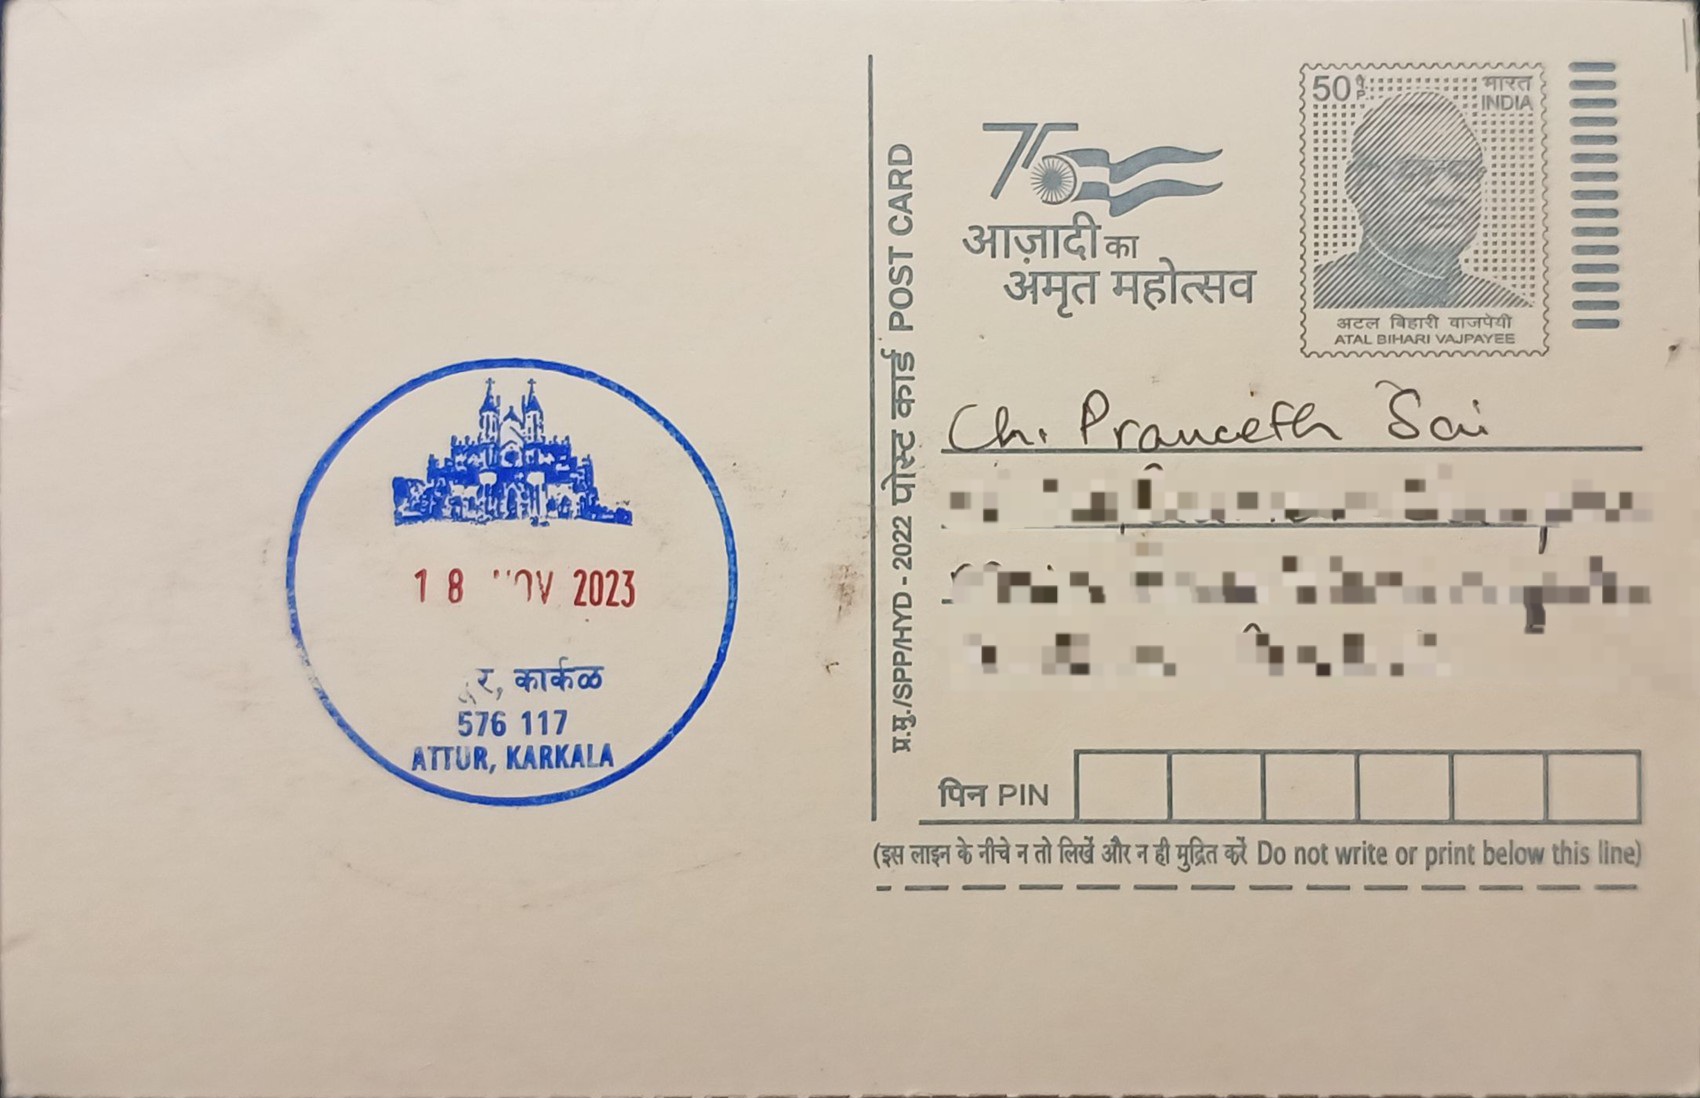 18 NOV 2023
र, कार्कळ
576 117
ATTUR, KARKALA
प्र.मु./SPP/HYD - 2022 पोस्ट कार्ड POST CARD
75
आज़ादी का
अमृत महोत्सव
50 प. P.
भारत
INDIA
अटल बिहारी वाजपेयी
ATAL BIHARI VAJPAYEE
Ch. Praneeth Sai
पिन PIN
(इस लाइन के नीचे न तो लिखें और न ही मुद्रित करें Do not write or print below this line)